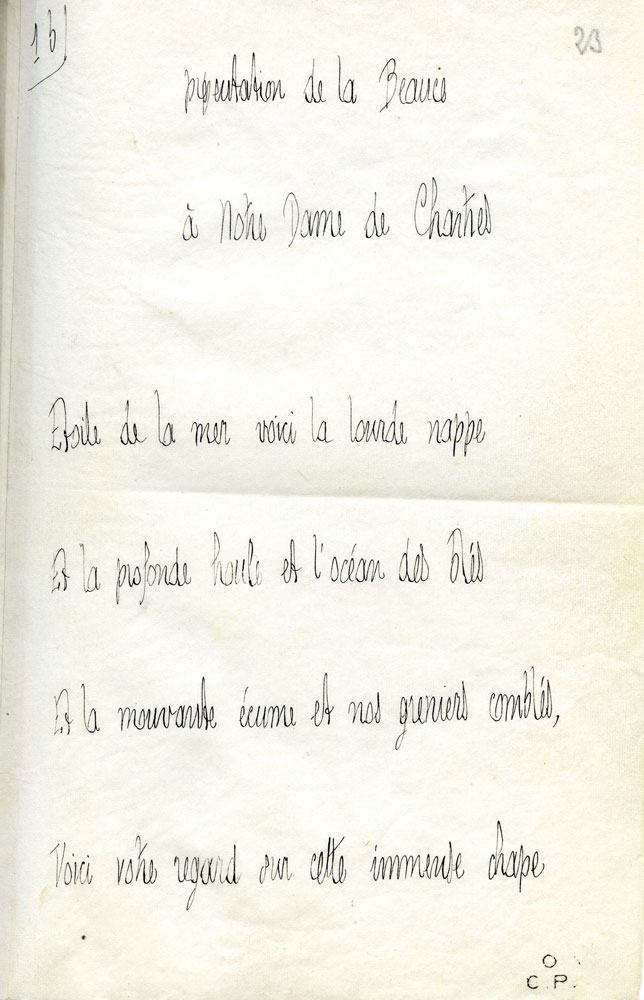 1b)
23
présentation de la Beauce
à Notre Dame de Chartres
Etoile de la mer voici la lourde nappe
Et la profonde houle et l'océan des blés
Et la mouvante écume et nos greniers comblés,
Voici votre regard sur cette immense chape
O
C.P.